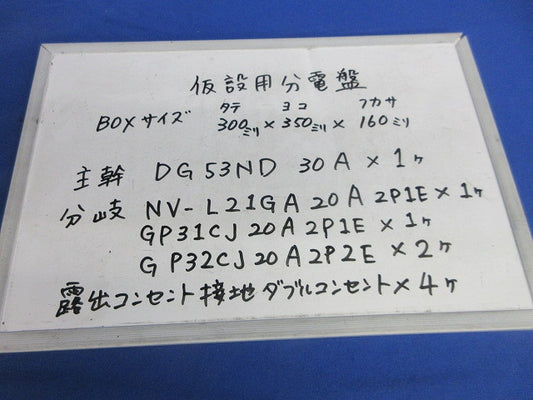 仮設用分電盤
タテ ヨコ フカサ
BOXサイズ 300ミリ×350ミリ×160ミリ
主幹 DG53ND 30A×1ヶ
分岐 NV-L21GA 20A 2P1E×1ヶ
GP31CJ 20A 2P1E×1ヶ
GP32CJ 20A 2P2E×2ヶ
露出コンセント接地ダブルコンセント×4ヶ